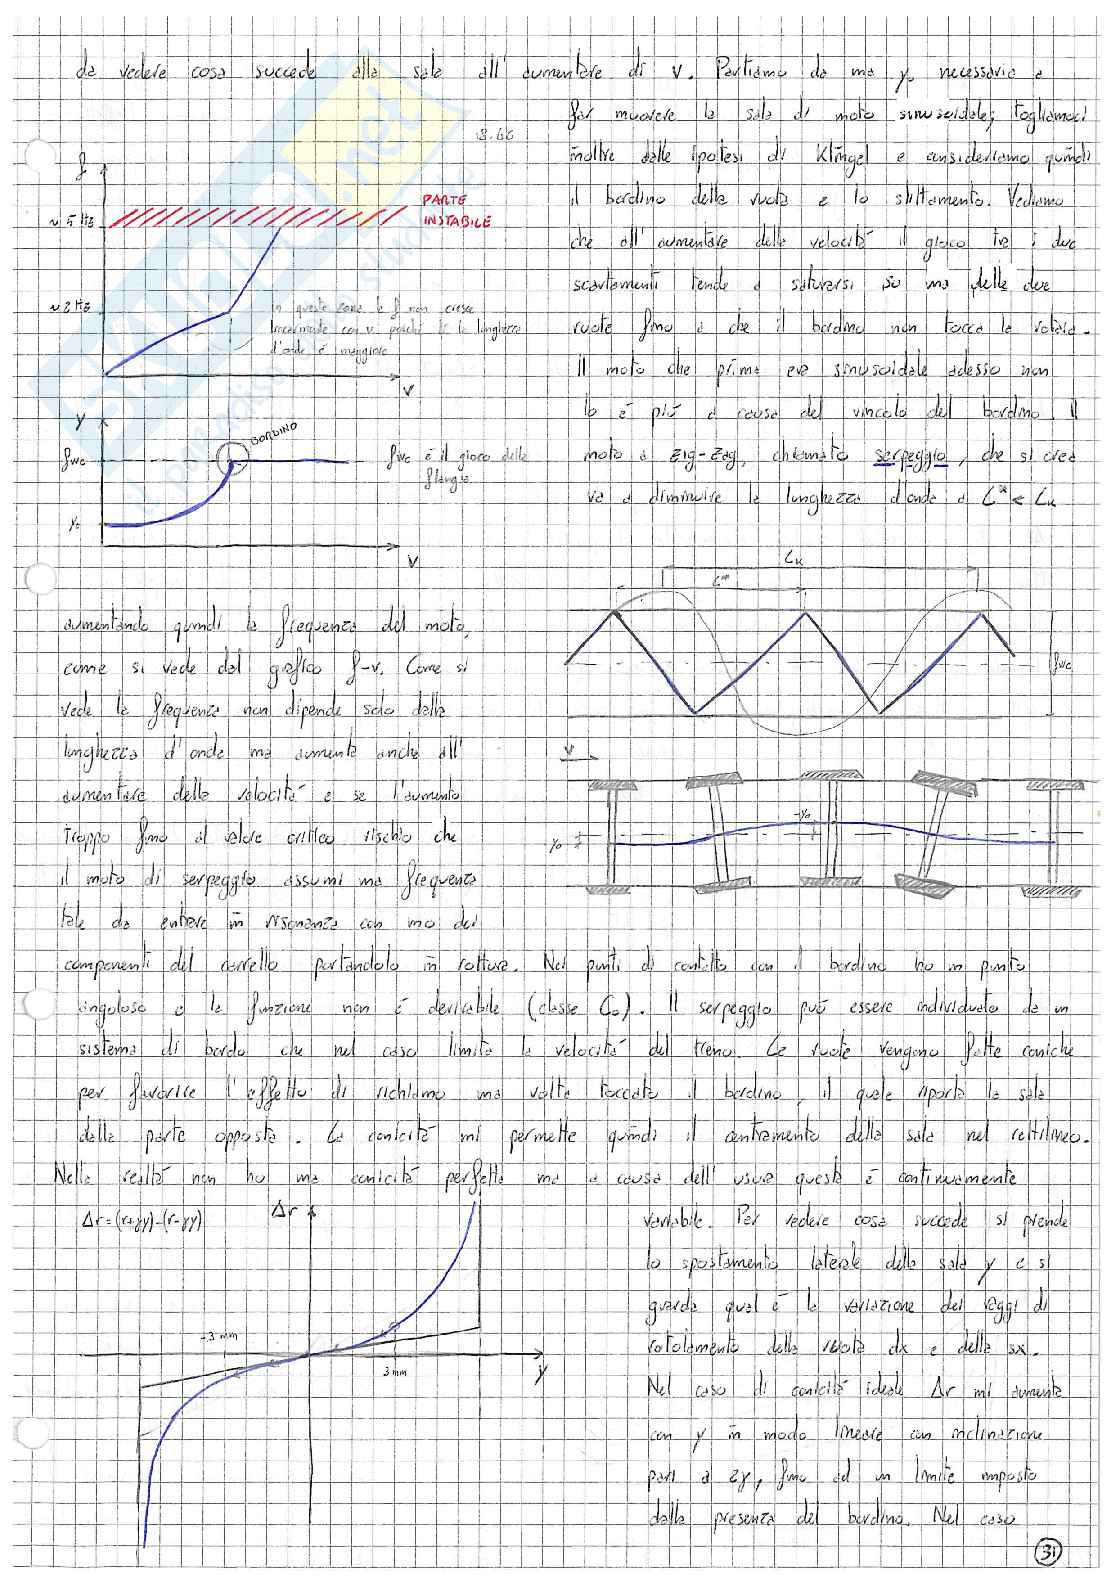 da vedere cosa succede alla sala all'aumentare di v. Partiamo da una y₀ necessaria a
far muovere la sala di moto sinusoidale; togliamoci
inoltre dalle ipotesi di Klingel e consideriamo quindi
il bordino della ruota e lo slittamento. Vediamo
che all'aumentare della velocità il gioco tra i due
scartamenti tende a saturarsi su una delle due
ruote fino a che il bordino non tocca la rotaia.
Il moto che prima era sinusoidale adesso non
lo è più a causa del vincolo del bordino. Il
moto a zig-zag, chiamato serpeggio, che si crea
va a diminuire la lunghezza d'onda a L* < Lk
f
~5 Hz
PARTE
INSTABILE
~2 Hz
in questa zona la f non cresce
linearmente con v, perché la lunghezza
d'onda è maggiore
v
y
BORDINO
fwc
fwc è il gioco della
flangia
y₀
v
Lk
L*
fwc
aumentando quindi la frequenza del moto,
come si vede dal grafico f-v. Come si
vede la frequenza non dipende solo dalla
lunghezza d'onda ma aumenta anche all'
aumentare della velocità e se l'aumento
troppo fino al valore critico rischio che
il moto di serpeggio assumi una frequenza
tale da entrare in risonanza con uno dei
v
y₀
-y₀
componenti del carrello portandolo in rottura. Nei punti di contatto con il bordino ho un punto
angoloso e la funzione non è derivabile (classe C₀). Il serpeggio può essere individuato da un
sistema di bordo che nel caso limita la velocità del treno. Le ruote vengono fatte coniche
per favorire l'effetto di richiamo una volta toccato il bordino, il quale riporta la sala
dalla parte opposta. La conicità mi permette quindi il centramento della sala nel rettilineo.
Nella realtà non ho una conicità perfetta ma a causa dell'usura questa è continuamente
variabile. Per vedere cosa succede si prende
lo spostamento laterale della sala y e si
guarda qual è la variazione dei raggi di
rotolamento della ruota dx e della sx.
Nel caso di conicità ideale Δr mi aumenta
con y in modo lineare con inclinazione
pari a 2γ, fino ad un limite imposto
dalla presenza del bordino. Nel caso
Δr=(r+γy)-(r-γy)
Δr
-3 mm
3 mm
y
31